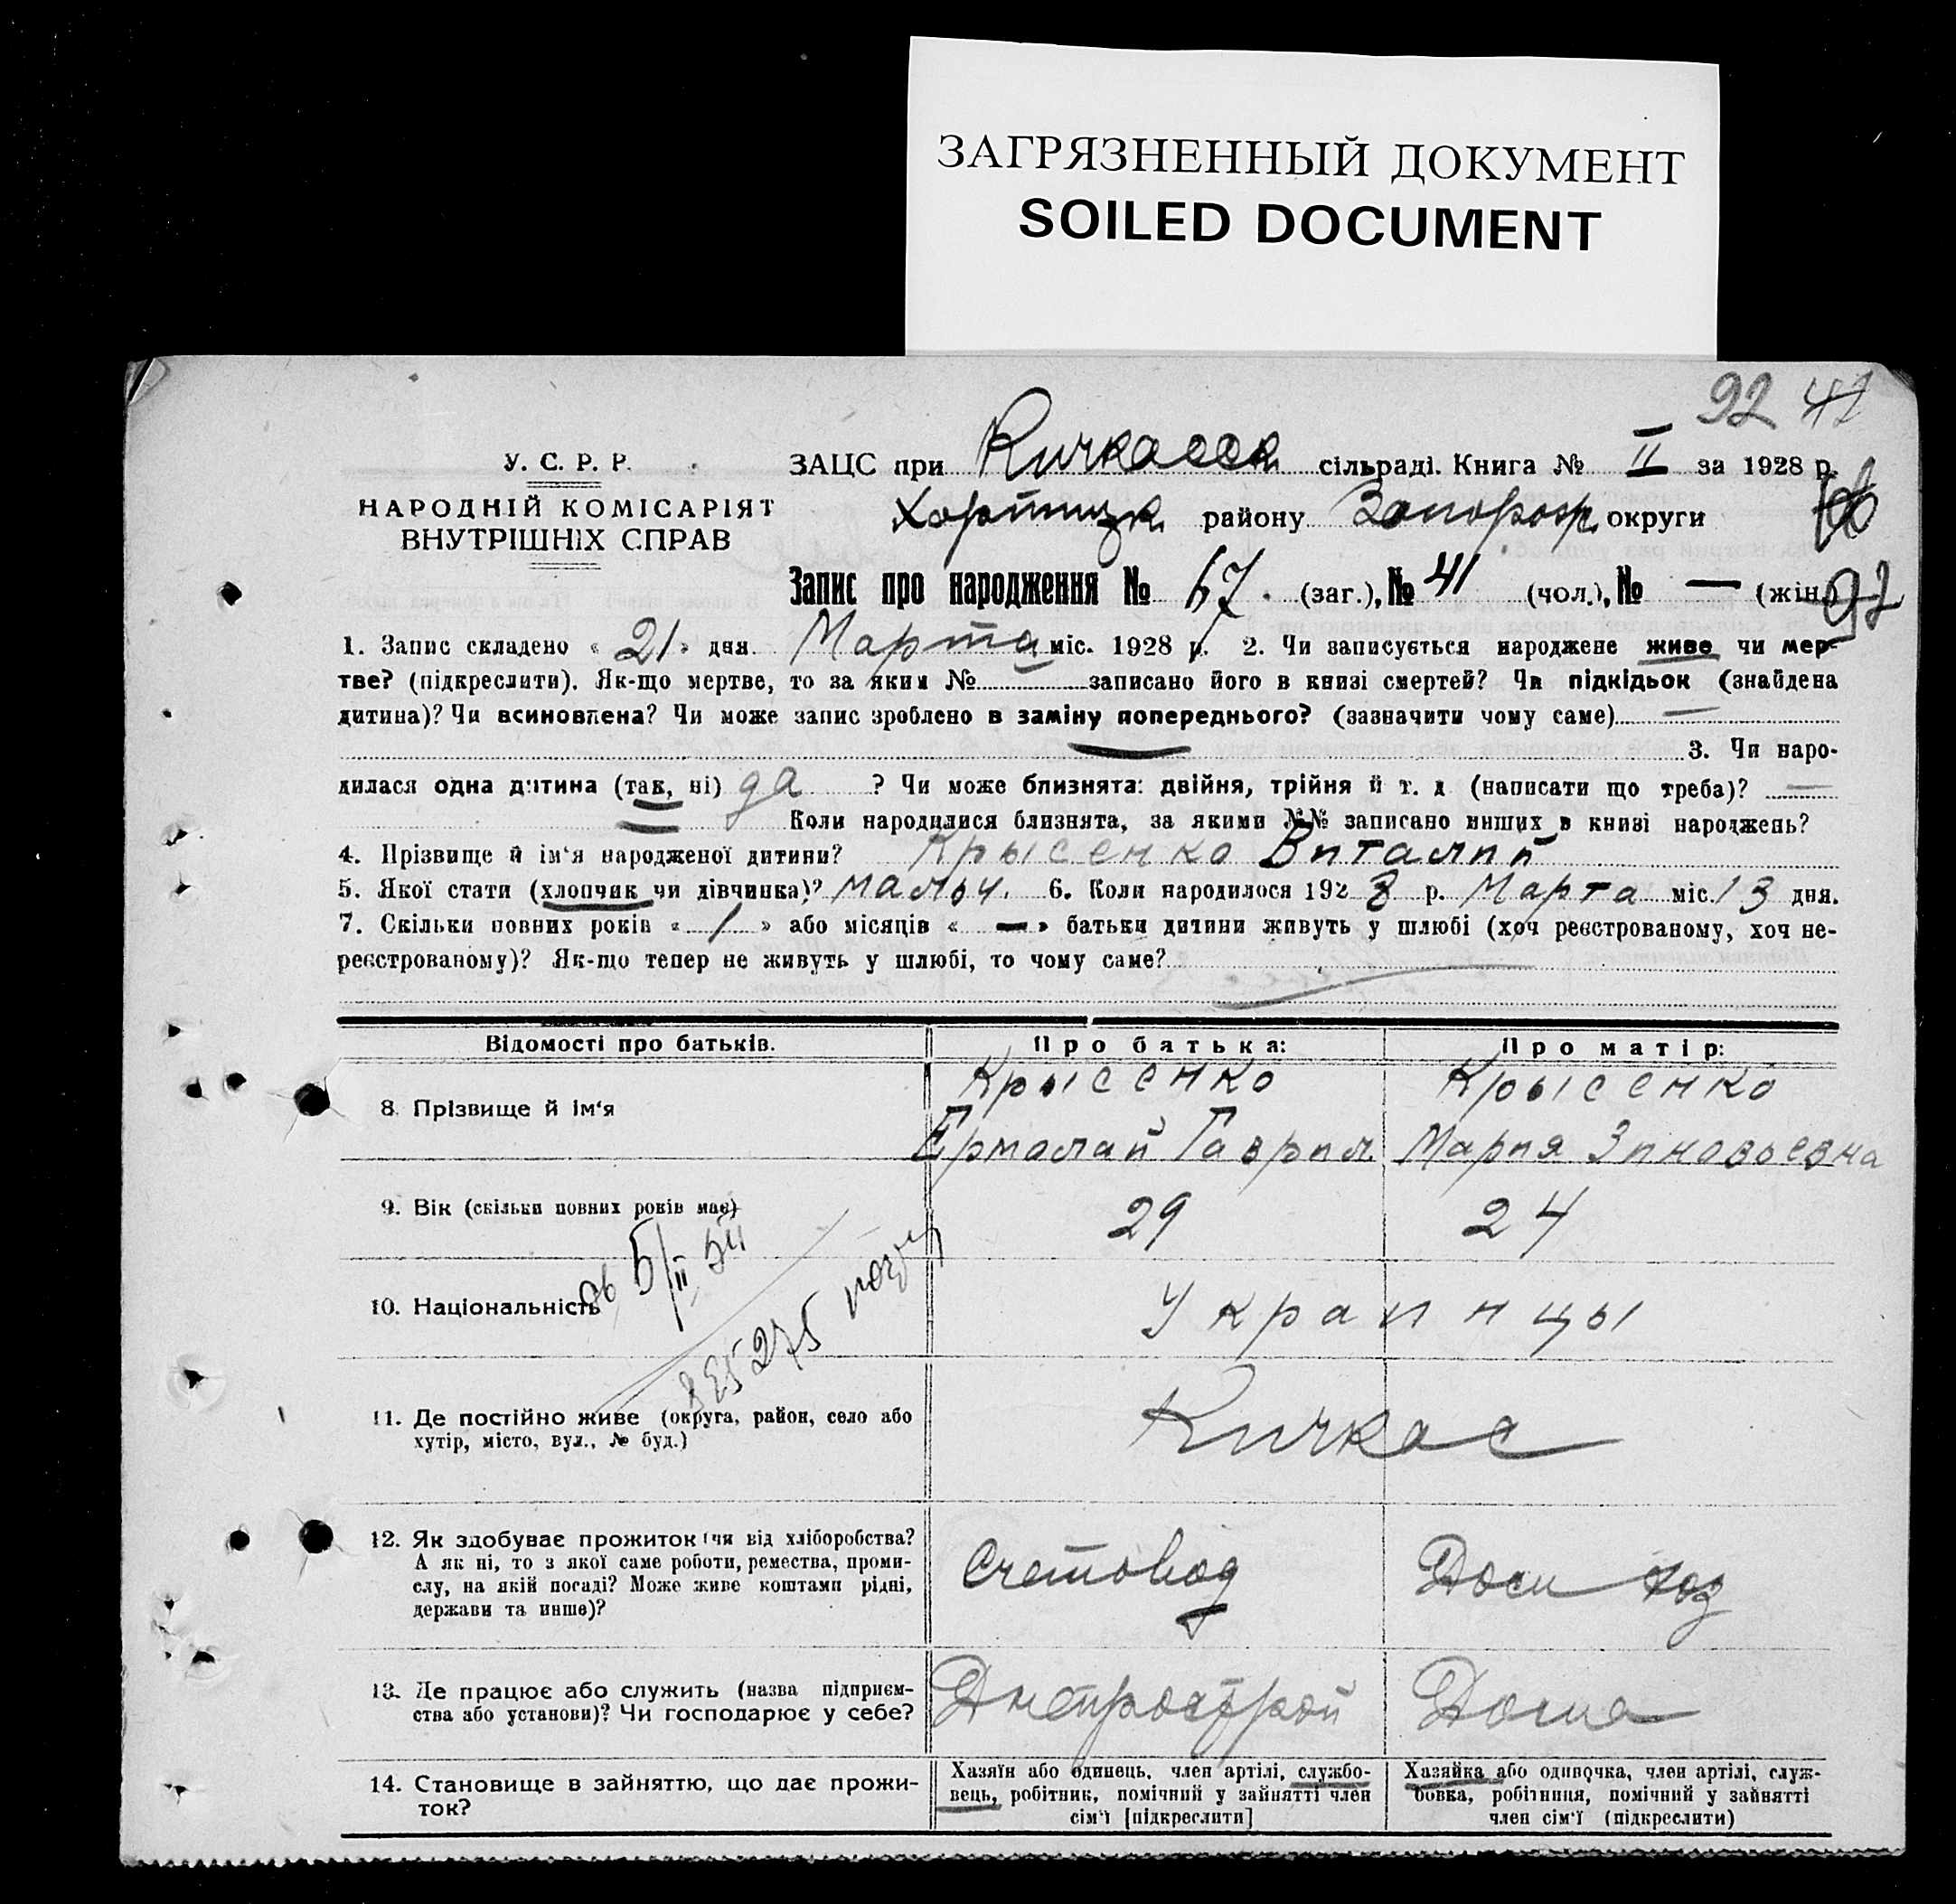 ЗАГРЯЗНЕННЫЙ ДОКУМЕНТ
SOILED DOCUMENT
92 41
У. С. Р. Р.
НАРОДНІЙ КОМІСАРІЯТ
ВНУТРІШНІХ СПРАВ
ЗАЦС при Кичкасск. сільраді. Книга № II за 1928 р.
Хортицк. району Запорож. округи
Запис про народження № 67. (заг.), № 41 (чол.), № — (жін.)
92
1. Запис складено « 21 » дня Марта міс. 1928 р. 2. Чи записується народжене живе чи мер-
тве? (підкреслити). Як-що мертве, то за яким № записано його в книзі смертей? Чи підкідьок (знайдена
дитина)? Чи всиновлена? Чи може запис зроблено в заміну попереднього? (зазначити чому саме) —
3. Чи наро-
дилася одна дитина (так, ні) да ? Чи може близнята: двійня, трійня й т. д (написати що треба)? —
Коли народилися близнята, за якими №№ записано инших в книзі народжень?
4. Прізвище й ім'я народженої дитини? Крысенко Виталий
5. Якої стати (хлопчик чи дівчинка)? мальч. 6. Коли народилося 1928 р. Марта міс. 13 дня.
7. Скільки повних років « 1 » або місяців « — » батьки дитини живуть у шлюбі (хоч реєстрованому, хоч не-
реєстрованому)? Як-що тепер не живуть у шлюбі, то чому саме?
Відомості про батьків. Про батька: Про матір:
8. Прізвище й ім'я Крысенко Крысенко
Ермолай Гаврил. Мария Зиновьевна
9. Вік (скільки повних років має) 29 24
5/II 54
10. Національність Украинцы
325275
11. Де постійно живе (округа, район, село або
хутір, місто, вул., № буд.) Кичкас
12. Як здобуває прожиток (чи від хліборобства?
А як ні, то з якої саме роботи, ремества, проми-
слу, на якій посаді? Може живе коштами рідні,
держави та инше)? Счетовод Дом хоз
13. Де працює або служить (назва підприєм-
ства або установи)? Чи господарює у себе? Днепрострой Дома
14. Становище в зайняттю, що дає прожи-
ток?
Хазяїн або одинець, член артілі, службо-
вець, робітник, помічний у зайнятті член
сім'ї [підкреслити]
Хазяйка або одиночка, член артілі, служ-
бовка, робітниця, помічний у зайнятті
член сім'ї (підкреслити)